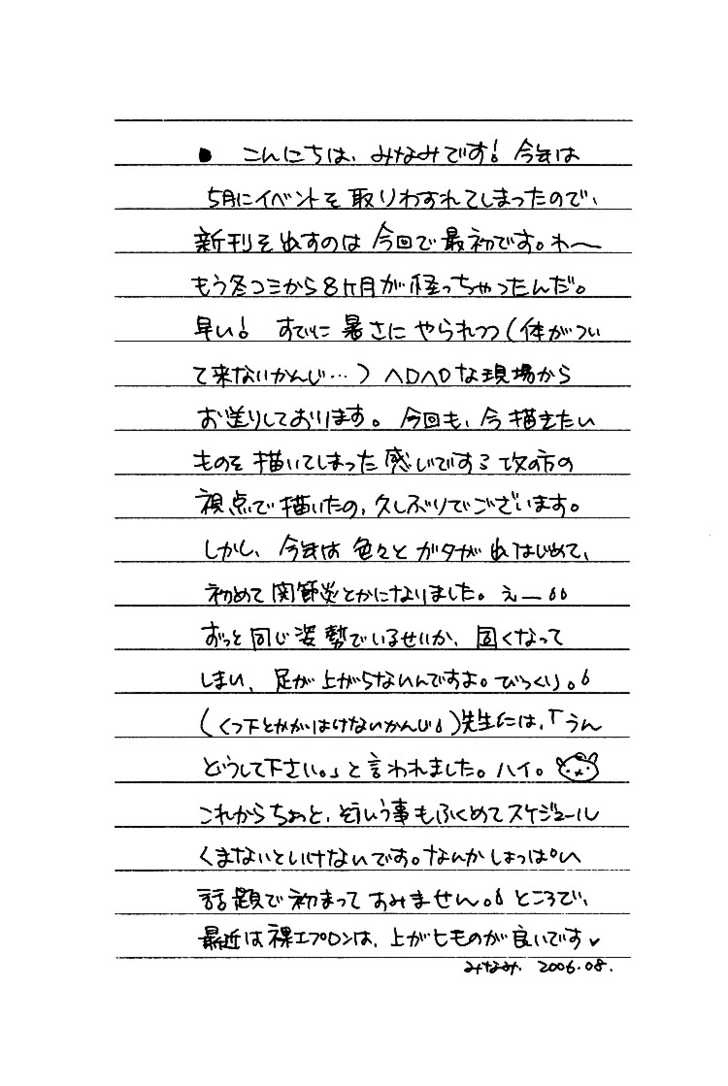 ● こんにちは、みなみです! 今年は
5月にイベントを取りわすれてしまったので、
新刊を出すのは今回で最初です。わ〜
もう冬コミから8ケ月が経っちゃったんだ。
早い! すでに暑さにやられつつ(体がつい
て来ないかんじ…)ヘロヘロな現場から
お送りしております。今回も、今描きたい
ものを描いてしまった感じでする 攻の方の
視点で描いたの、久しぶりでございます。
しかし、今年は色々とガタが出はじめて、
初めて関節炎とかになりました。え—
ずっと同じ姿勢でいるせいか、固くなって
しまい、足が上がらないんですよ。びっくり。
(くつ下とかがはけないかんじ)先生には、「うん
どうして下さい。」と言われました。ハイ。
これからちょっと、そういう事もふくめてスケジュール
くまないといけないです。なんかしょっぱい
話題で初まってすみません。ところで、
最近は裸エプロンは、上が七ものが良いです
みなみ. 2006.08.